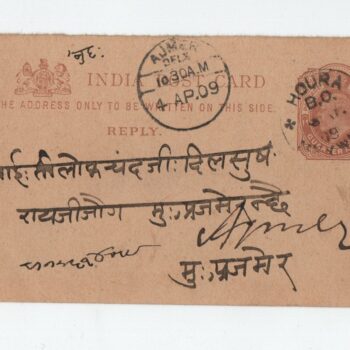 जुदः
AJMER
DELY
10.30 A.M
4 AP.09
INDIA POST CARD
THE ADDRESS ONLY TO BE WRITTEN ON THIS SIDE.
REPLY.
HOURA
B.O.
भाई: तीलोकचंदजी: दिलसुष
रायजीजोग मु: अजमेर
Ajmer
मु: अजमेर